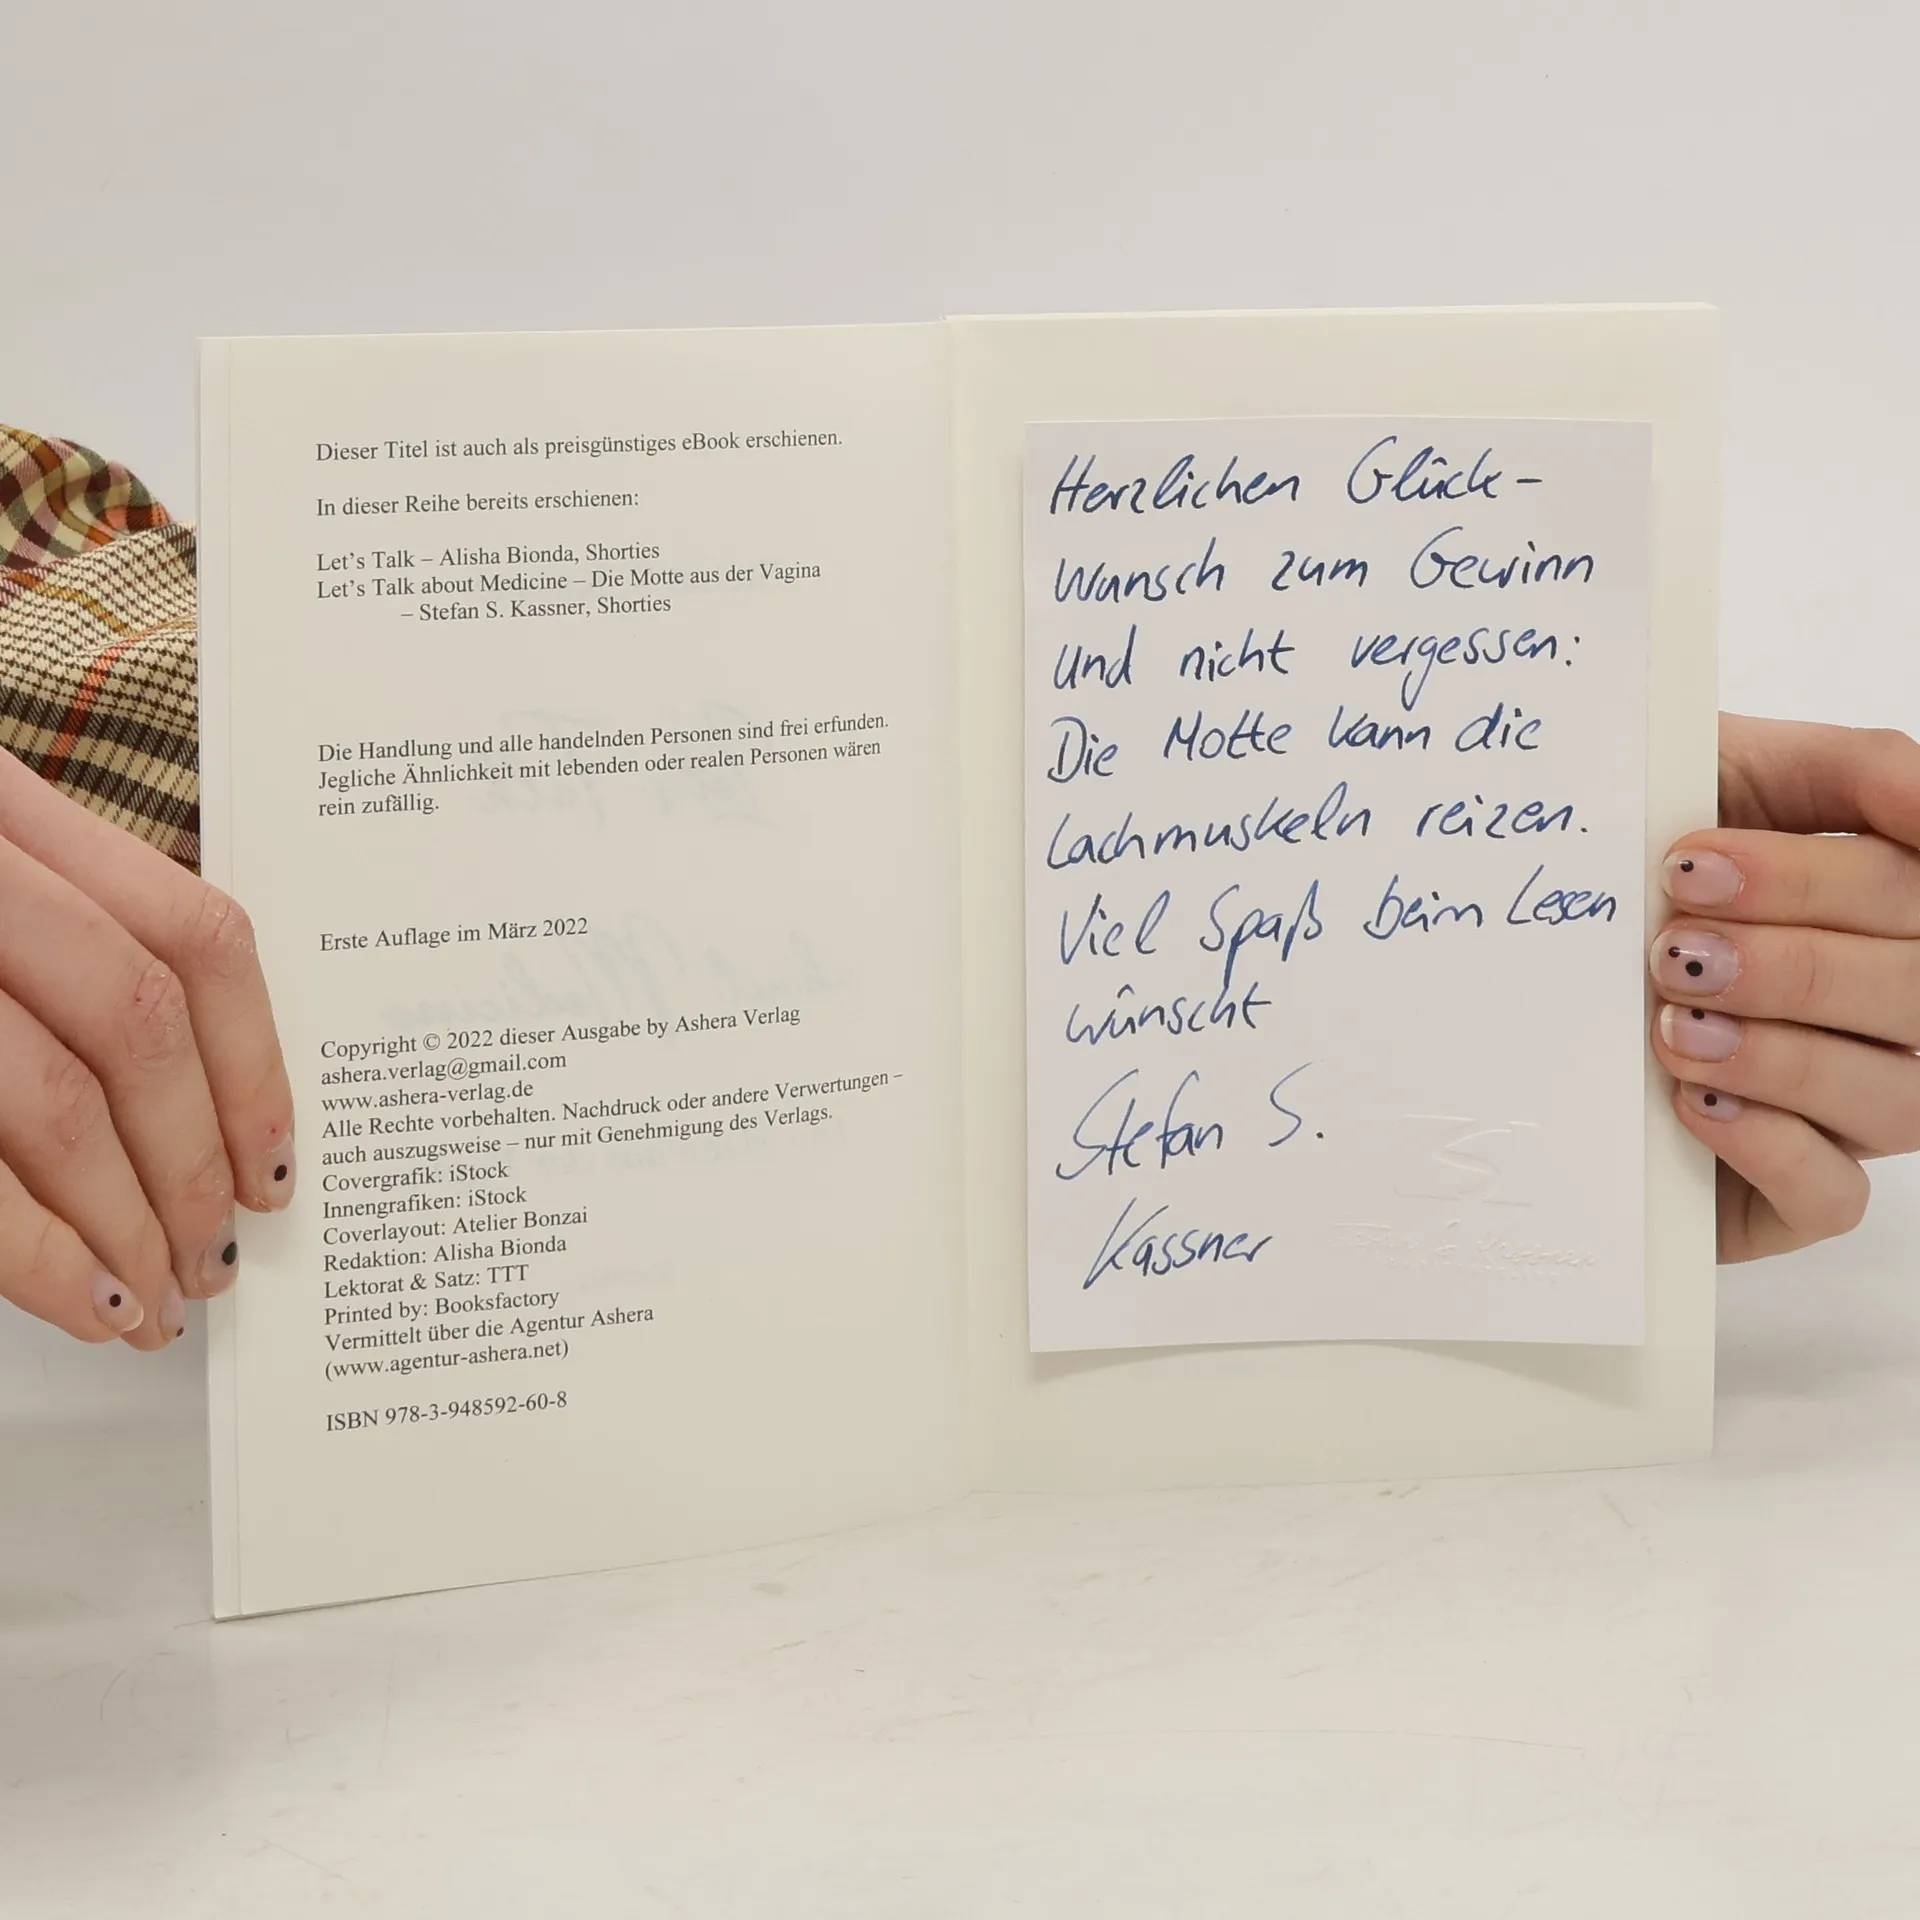 Dieser Titel ist auch als preisgünstiges eBook erschienen.
In dieser Reihe bereits erschienen:
Let's Talk – Alisha Bionda, Shorties
Let's Talk about Medicine – Die Motte aus der Vagina
– Stefan S. Kassner, Shorties
Die Handlung und alle handelnden Personen sind frei erfunden.
Jegliche Ähnlichkeit mit lebenden oder realen Personen wären
rein zufällig.
Erste Auflage im März 2022
Copyright © 2022 dieser Ausgabe by Ashera Verlag
ashera.verlag@gmail.com
www.ashera-verlag.de
Alle Rechte vorbehalten. Nachdruck oder andere Verwertungen –
auch auszugsweise – nur mit Genehmigung des Verlags.
Covergrafik: iStock
Innengrafiken: iStock
Coverlayout: Atelier Bonzai
Redaktion: Alisha Bionda
Lektorat & Satz: TTT
Printed by: Booksfactory
Vermittelt über die Agentur Ashera
(www.agentur-ashera.net)
ISBN 978-3-948592-60-8
Herzlichen Glück-
wunsch zum Gewinn
und nicht vergessen:
Die Motte kann die
Lachmuskeln reizen.
Viel Spaß beim Lesen
wünscht
Stefan S.
Kassner